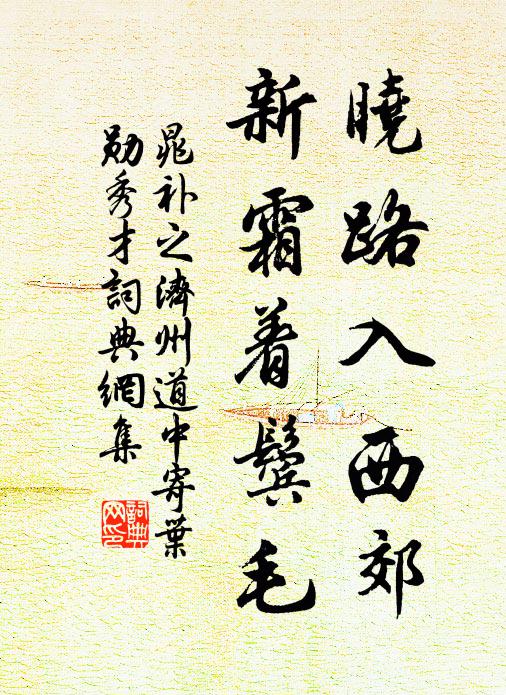 曉路入西郊
新霜着鬢毛
晁补之濟州道中寄葉
勛秀才詞典網集
詞典
网印